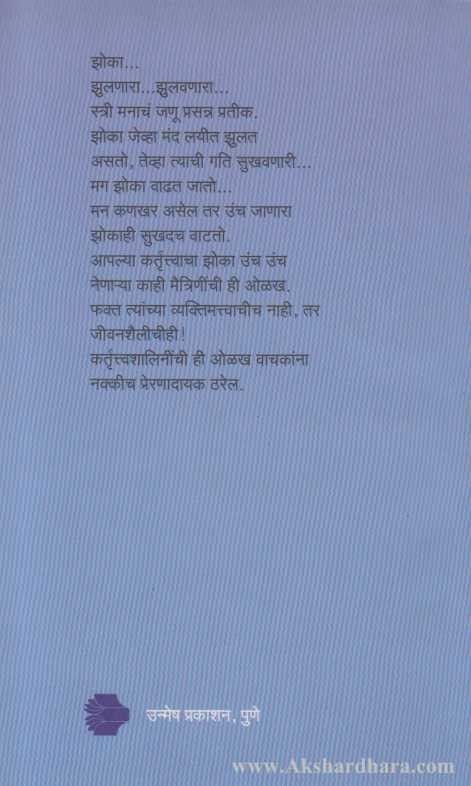 झोका...
झुलणारा...झुलवणारा...
स्त्री मनाचं जणू प्रसन्न प्रतीक.
झोका जेव्हा मंद लयीत झुलत
असतो, तेव्हा त्याची गति सुखवणारी...
मग झोका वाढत जातो...
मन कणखर असेल तर उंच जाणारा
झोकाही सुखदच वाटतो.
आपल्या कर्तृत्त्वाचा झोका उंच उंच
नेणाऱ्या काही मैत्रिणींची ही ओळख.
फक्त त्यांच्या व्यक्तिमत्त्वाचीच नाही, तर
जीवनशैलीचीही!
कर्तृत्त्वशालिनींची ही ओळख वाचकांना
नक्कीच प्रेरणादायक ठरेल.
उन्मेष प्रकाशन, पुणे
www.Akshardhara.com